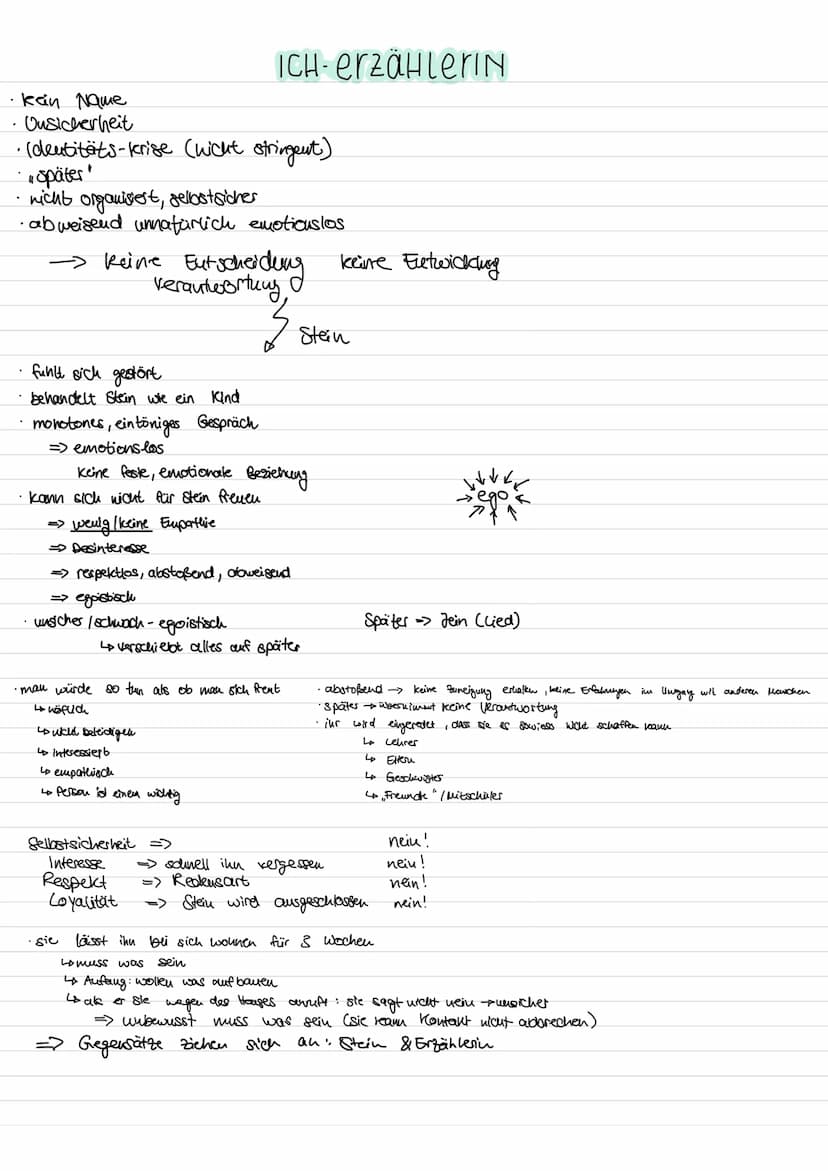 ICH-erzählerIN
· kein Name
· Unsicherheit
· Identitäts-krise (nicht stringent)
· „später"
· nicht organisiert, selbstsicher
· abweisend unnatürlich emotionslos
→ keine Entscheidung keine Entwicklung
Verantwortung
Stein
· fühlt sich gestört
· behandelt Stein wie ein Kind
· monotones, eintöniges Gespräch
=> emotionslos
keine feste, emotionale Beziehung
· kann sich nicht für Stein freuen
ego
=> wenig/keine Empathie
=> Desinteresse
=> respektlos, abstoßend, abweisend
=> egoistisch
· unsicher/schwach - egoistisch
Später => Jein (Lied)
↳ verschiebt alles auf später
· man würde so tun als ob man sich freut
↳ höflich
↳ nicht beleidigen
↳ Interessiert
↳ empathisch
↳ Person ist einem wichtig
· abstoßend → keine Zuneigung erhalten, keine Erfahrungen im Umgang mit anderen Menschen
· später → übernimmt keine Verantwortung
· ihr wird eingeredet, das sie es sowieso nicht schaffen kann
↳ Lehrer
↳ Eltern
↳ Geschwister
↳ „Freunde"/Mitschüler
Selbstsicherheit => nein!
Interesse => schnell ihn vergessen nein!
Respekt => Redensart nein!
Loyalität => Stein wird ausgeschlossen nein!
· sie lässt ihn bei sich wohnen für 3 Wochen
↳ muss was sein
↳ Anfang: wollen was aufbauen
↳ als er sie wegen des Hauses anruft: sie sagt nicht nein → unsicher
=> unbewusst muss was sein (sie kann Kontakt nicht abbrechen)
=> Gegensätze ziehen sich an: Stein & Erzählerin